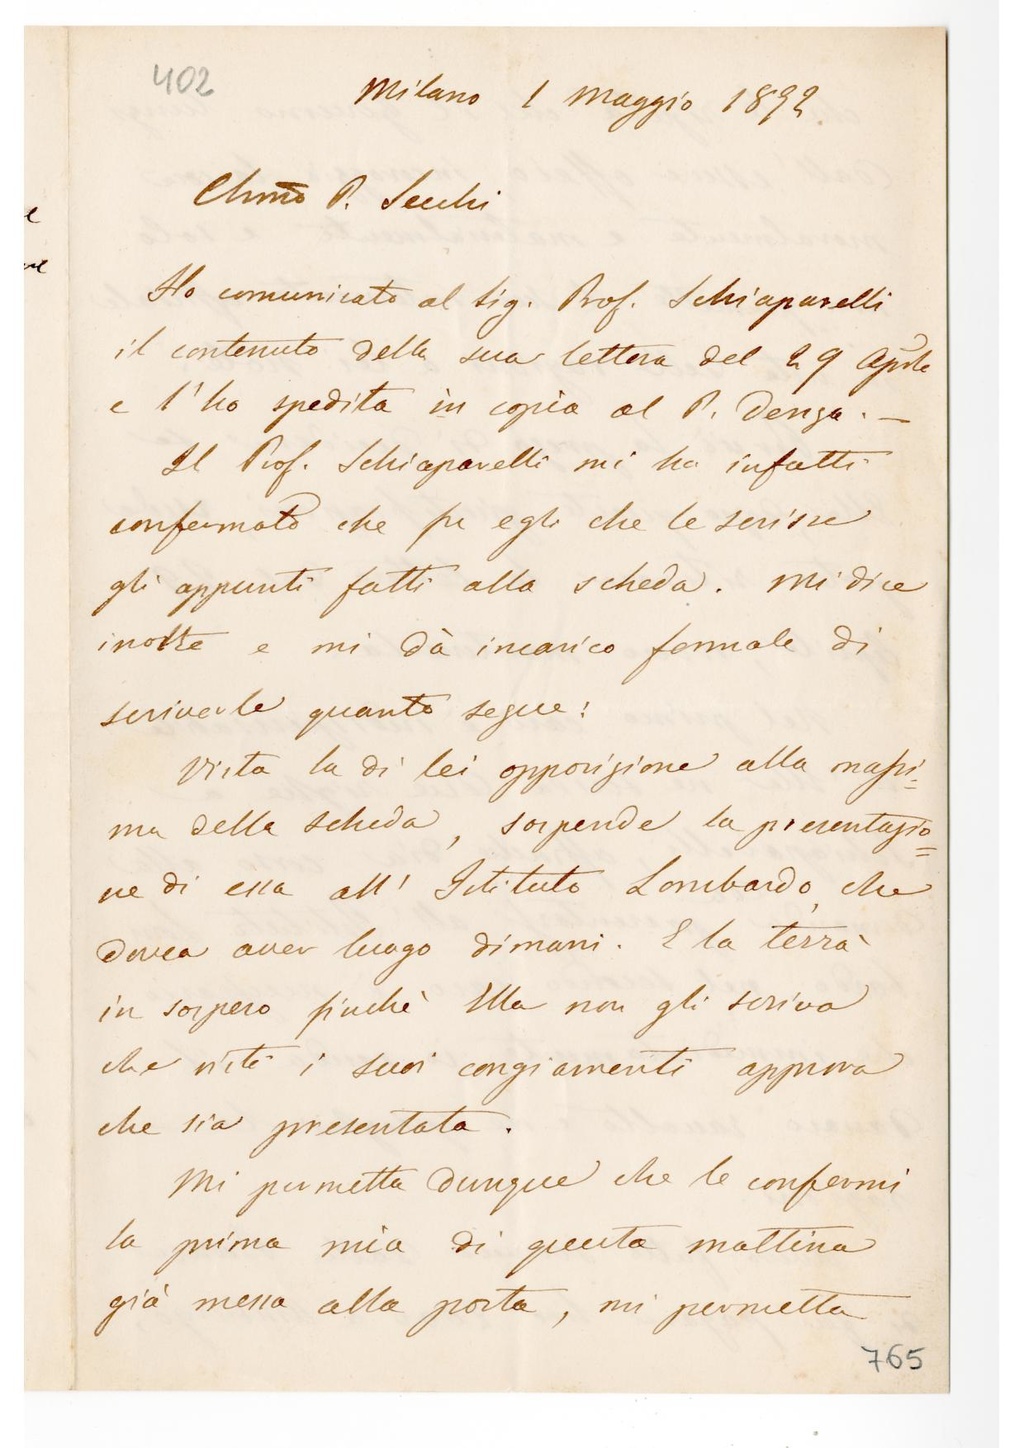 402
Milano 1 Maggio 1872
Chmo P. Secchi
Ho comunicato al Sig. Prof. Schiaparelli
il contenuto della sua lettera del 29 Aprile
e l'ho spedita in copia al P. Denza. —
Il Prof. Schiaparelli mi ha infatti
confermato che fu egli che le scrisse
gli appunti fatti alla scheda. Mi dice
inoltre e mi dà incarico formale di
scriverle quanto segue:
Vista la di lei opposizione alla massi-
ma della scheda, sospende la presentazio=
ne di essa all' Istituto Lombardo, che
dovea aver luogo dimani. E la terrà
in sospeso finchè Ella non gli scriva
che visti i suoi cangiamenti approva
che sia presentata.
Mi permetta dunque che le confermi
la prima mia di questa mattina
già messa alla posta, mi permetta
765